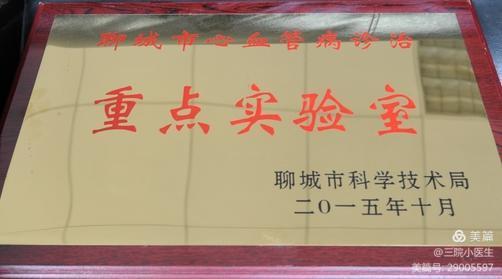 聊城市心血管病诊治
重点实验室
聊城市科学技术局
二〇一五年十月
美篇
@三院小医生
美篇号: 29005597